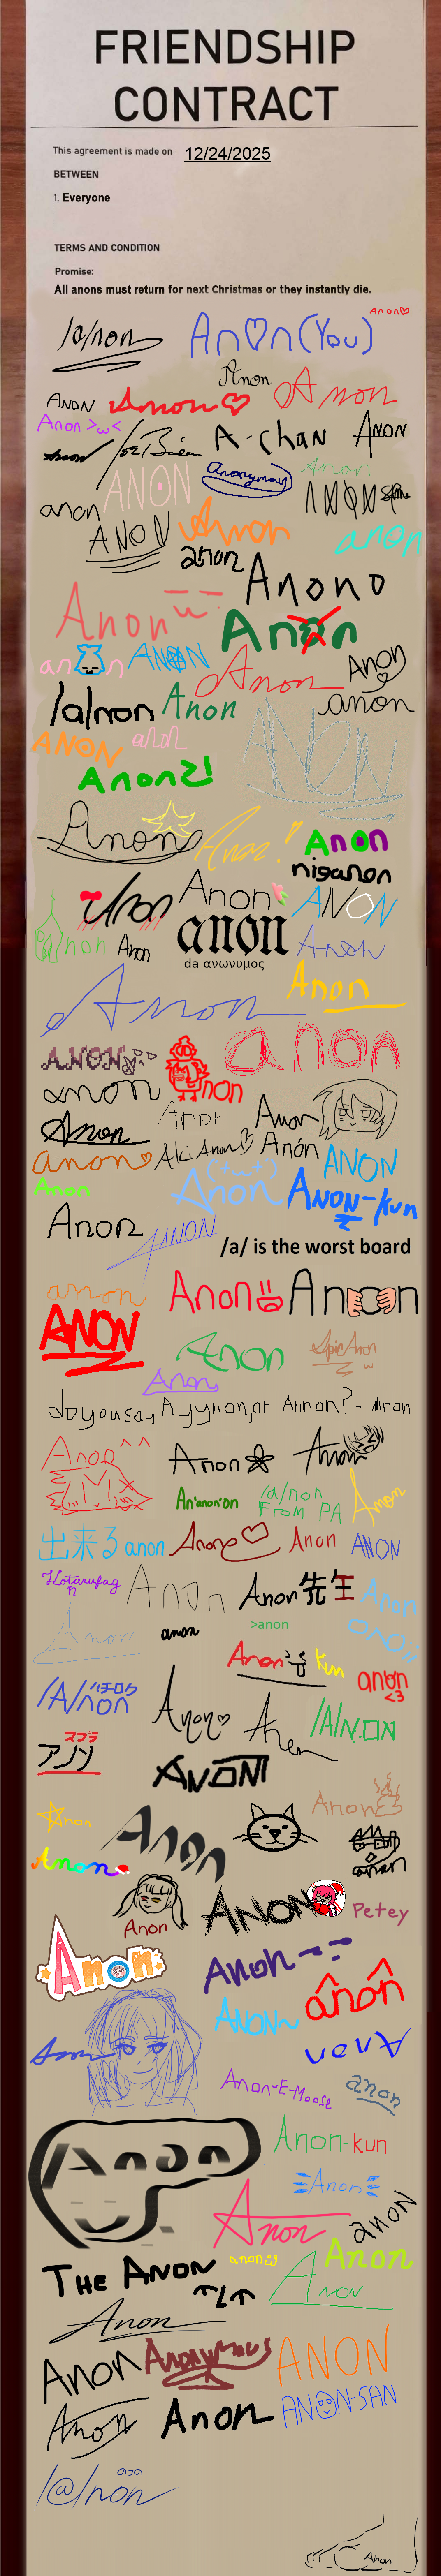 FRIENDSHIP
CONTRACT
This agreement is made on 12/24/2025
BETWEEN
1. Everyone
TERMS AND CONDITION
Promise:
All anons must return for next Christmas or they instantly die.
Anon♡
/a/non
An♡n(You)
Anon
Anon
ANON
Anon♡
Anon >ω<
Joe Biden
A-chan
Anon
Anon
ANON
Anonymous
Anon
anon
ANON
Anon
anon
anon
Anono
Anon
Anon
an n
ANON
Anon
Anon
/a/non
Anon
anon
ANON
anon
ANON
Anon고!
Anon
Anon!
Anon
niganon
Anon
Anon
ANON
anon
Anon
anon
da ανωνυμος
Anon
Anon
Anon
ANON
anon
non
anon
Anon
Anon
Anon
anon♡
Aki Anon♡
Anón
ANON
Anon
Anon
ANON-kun
Anon
ANON
/a/ is the worst board
anon
Anon
Anon
ANON
Anon
EpicAnon
Anon
do you say Ayynon, or Annon? - Unnon
Anon ^^
Anon
Anon
An'anon'on
/a/non
From PA
Anon
出来る anon
Anon♡
Anon
ANON
Hotarufag
n
Anon
Anon先生
Anon
anon
Anon
anon
>anon
Anon
kun
anon
<3
/A/non
ハチロク
Anon♡
Anon
/A/NON
スプラ
アノン
ANON
Anon
Anon
Anon
anon
Anon
Anon
ANON
Petey
Anon
Anon
ANON~
ânôn
Anon
Anon
Anon-E-Moose
anon
Anon
Anon-kun
Anon
Anon
anon
anon
Anon
THE ANON
Anon
Anon
Anon
Anonymous
ANON
Anon
Anon
ANON-SAN
/@/non
Anon